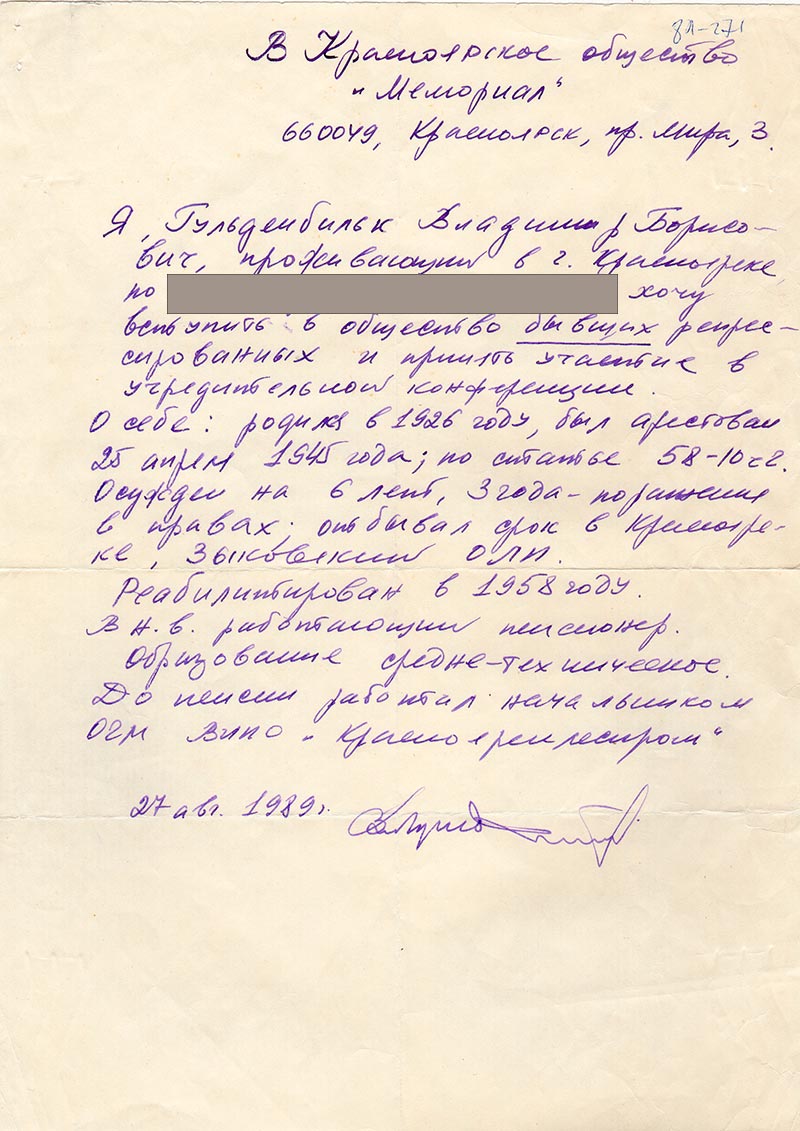 8л-271
В Красноярское общество
„Мемориал“
660049, Красноярск, пр. Мира, 3.
Я, Гульденбильк Владимир Борисо-
вич, проживающий в г. Красноярске,
по хочу
вступить в общество бывших репрес-
сированных и принять участие в
учредительной конференции.
О себе: родился в 1926 году, был арестован
25 апреля 1945 года; по статье 58-10 ч 2.
Осужден на 6 лет, 3 года - поражения
в правах; отбывал срок в Красноярс-
ке, Зыковский ОЛП.
Реабилитирован в 1958 году.
В н.в. работающий пенсионер.
Образование средне-техническое.
До пенсии работал начальником
ОГМ „Красноярсклеспром“
27 авг. 1989 г.